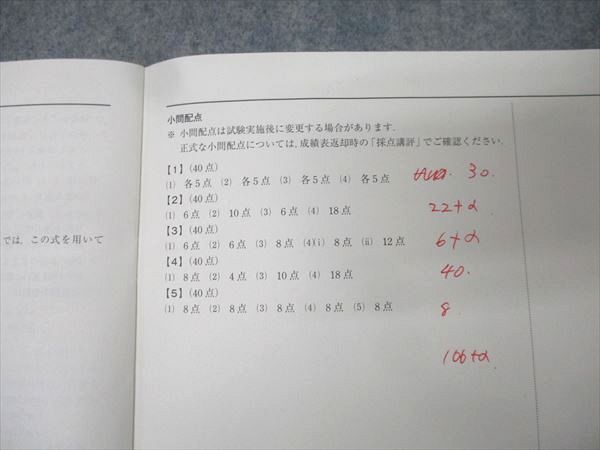 小問配点
※ 小問配点は試験実施後に変更する場合があります.
正式な小問配点については, 成績表返却時の「採点講評」でご確認ください.
【1】(40点)
(1) 各5点 (2) 各5点 (3) 各5点 (4) 各5点 30.
【2】(40点)
(1) 6点 (2) 10点 (3) 6点 (4) 18点 22+α
【3】(40点)
(1) 6点 (2) 6点 (3) 8点 (4)(i) 8点 (ii) 12点 6+α
【4】(40点)
(1) 8点 (2) 4点 (3) 10点 (4) 18点 40.
【5】(40点)
(1) 8点 (2) 8点 (3) 8点 (4) 8点 (5) 8点 8
106+α
では, この式を用いて